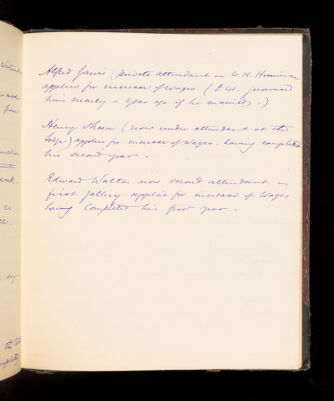 Alfred Jarvis (private attendant on W. H. Horniman
applies for increase of wages (£40. promised
him nearly a year ago if he married.)
Henry Shaw (now under attendant at the
Lodge) applies for increase of wages. having completed
his second year -
Edward Walton now second attendant in
first gallery applies for increase of wages
having completed his first year -